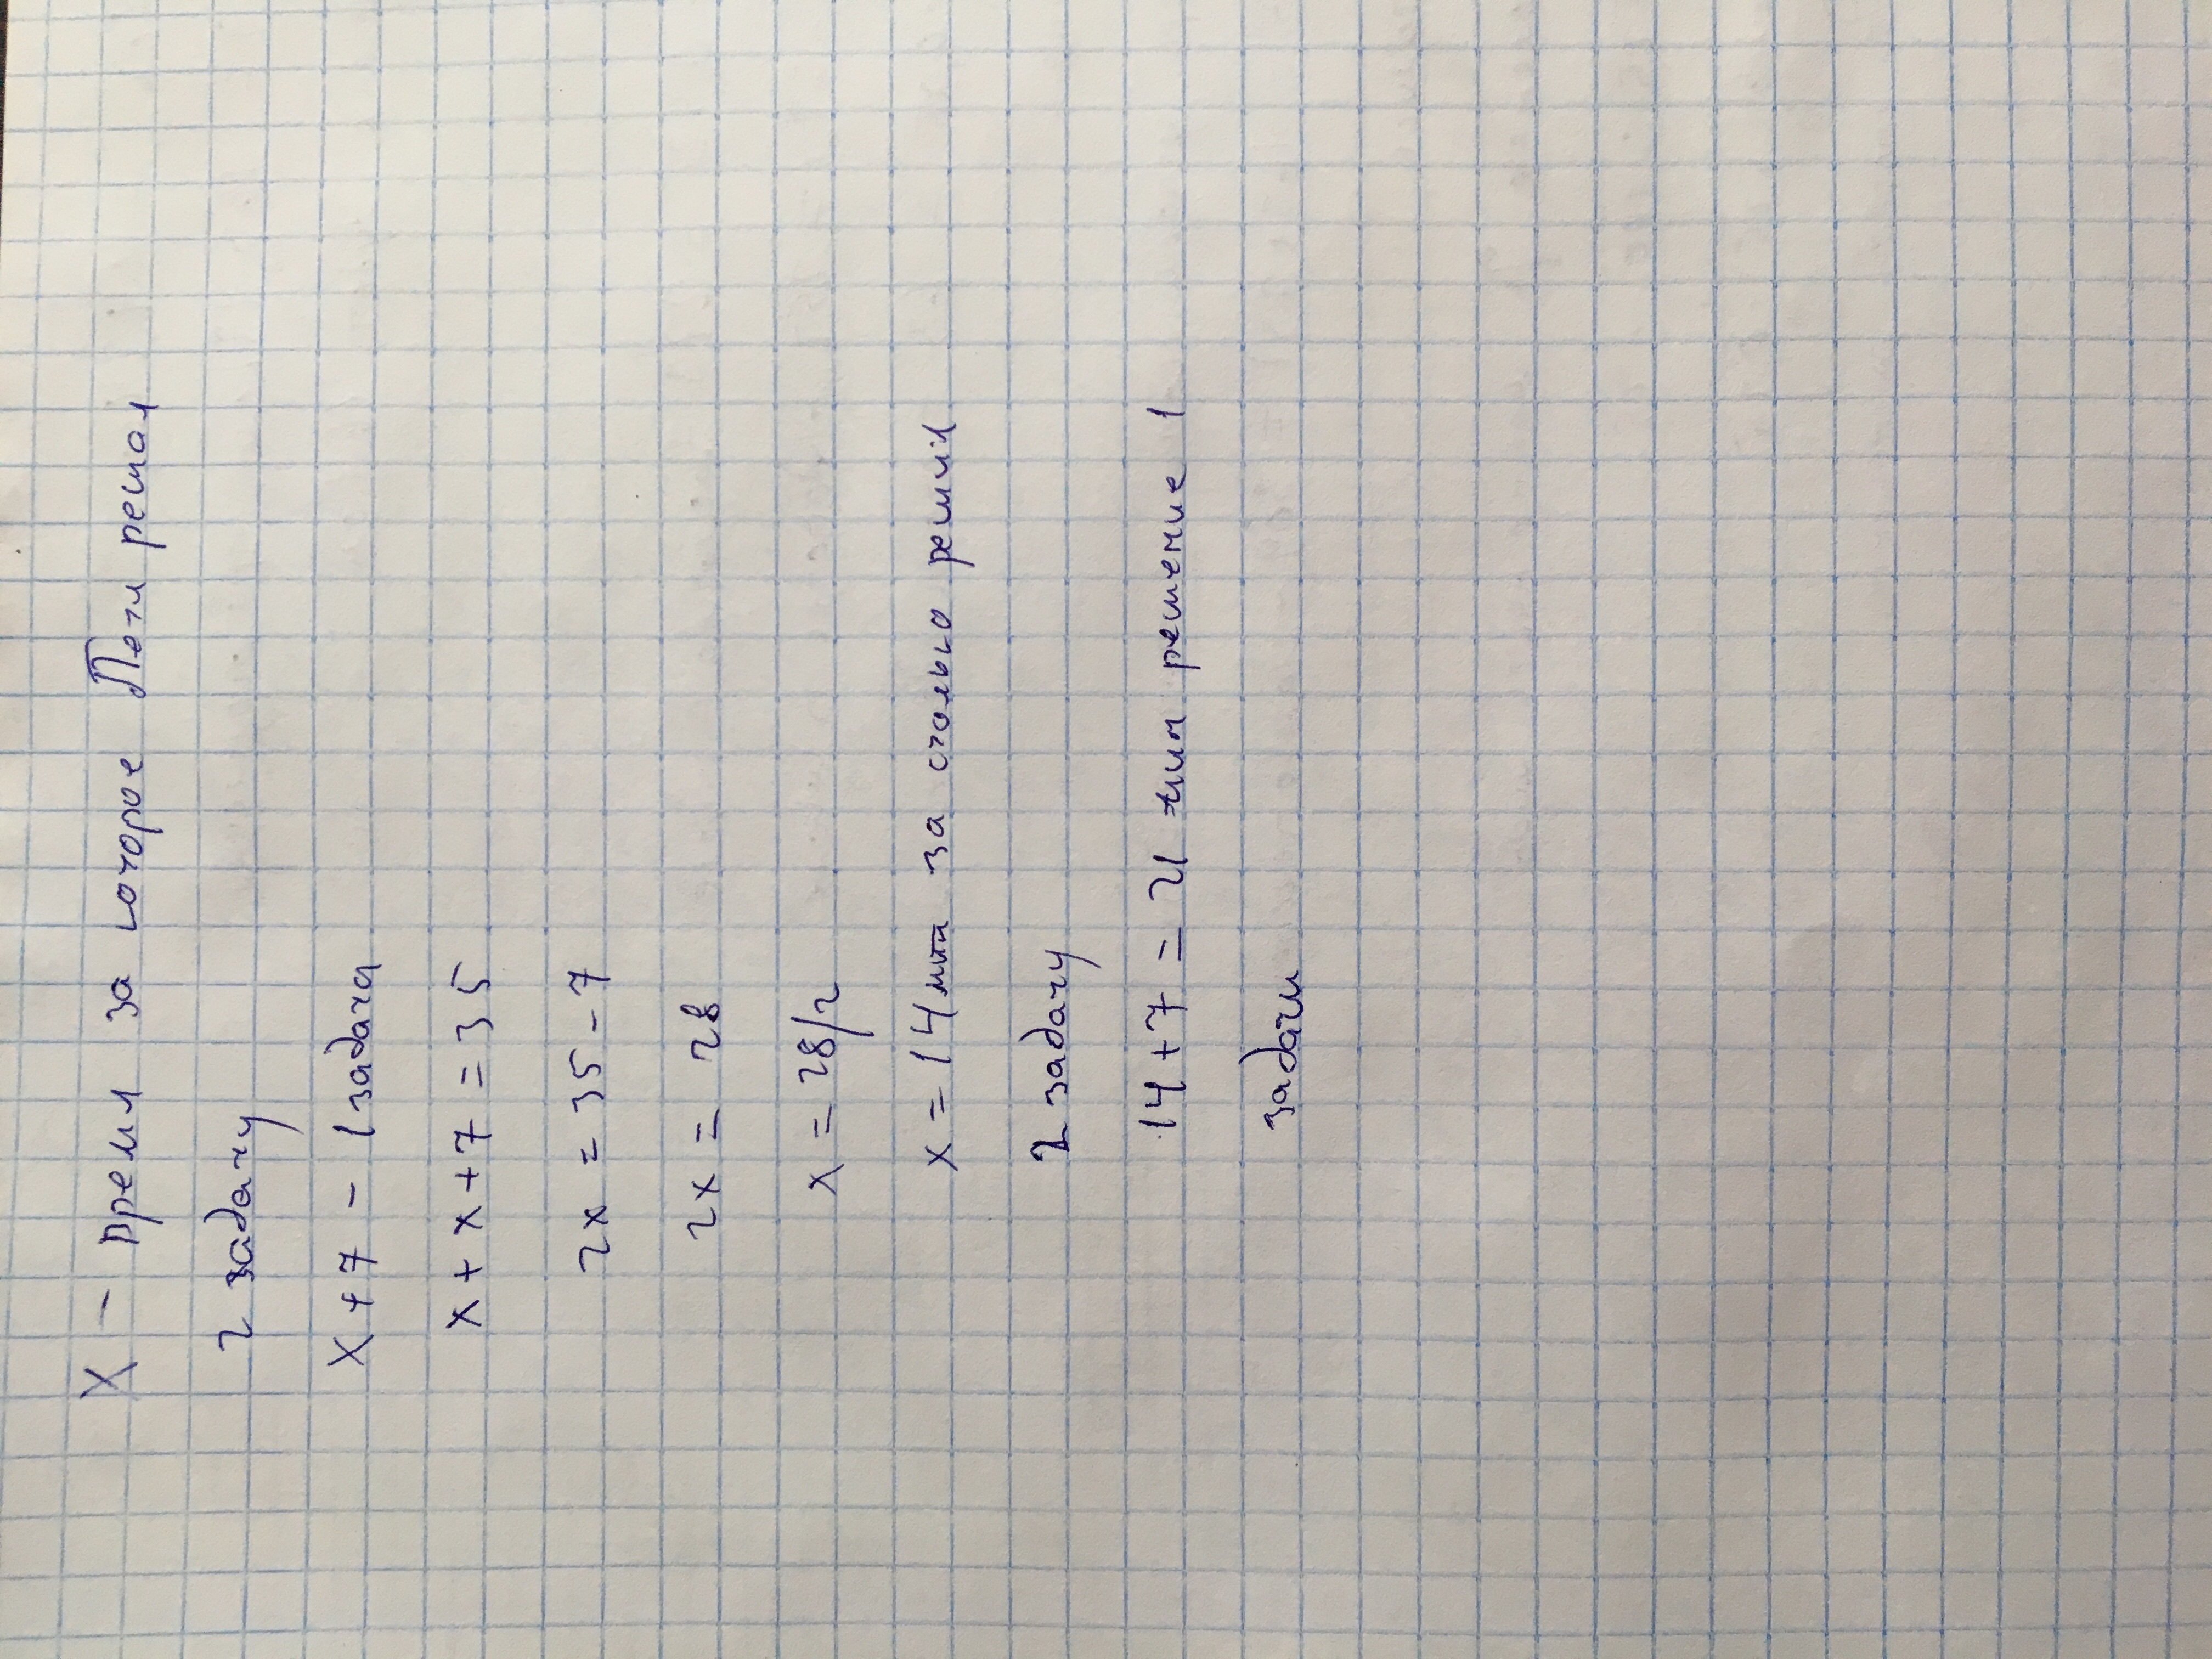 X - время за которое Петя решал
2 задачу
X + 7 - 1 задача
x + x + 7 = 35
2x = 35 - 7
2x = 28
x = 28/2
x = 14 мин за столько решил
2 задачу
14 + 7 = 21 мин решение 1
задачи